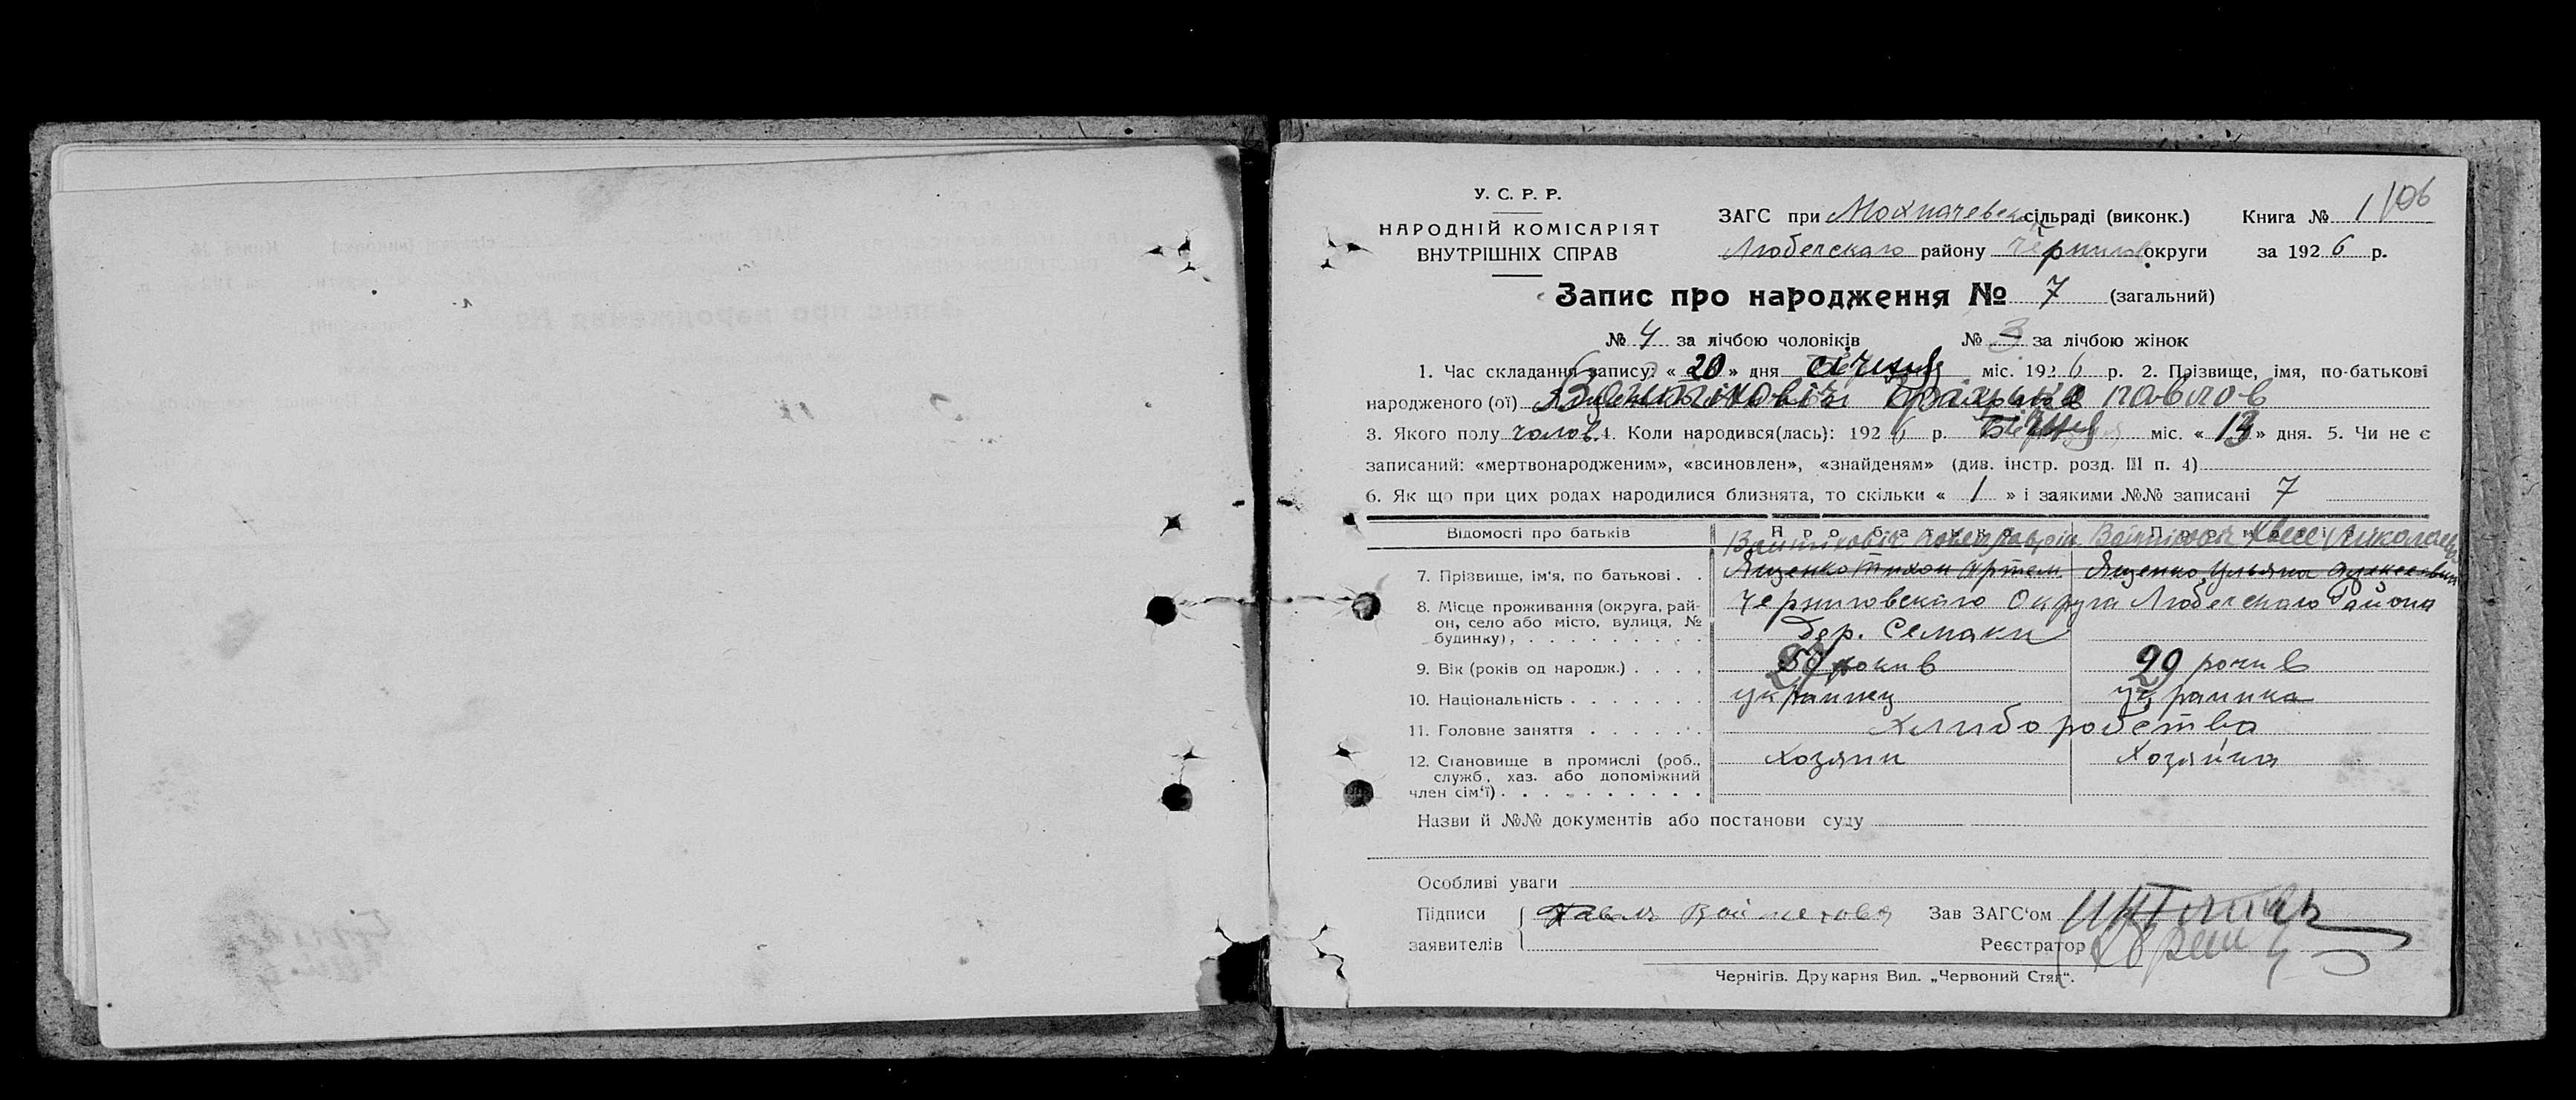 У. С. Р. Р.
НАРОДНІЙ КОМІСАРІЯТ
ВНУТРІШНІХ СПРАВ
ЗАГС при Мохначевск сільраді (виконк.) Книга № 1 106
Любечскаго району Чернигов округи за 1926 р.
Запис про народження № 7 (загальний)
№ 4 за лічбою чоловіків № 3 за лічбою жінок
1. Час складання запису: « 20 » дня січня міс. 1926 р. 2. Прізвище, імя, по-батькові
народженого (ої) павлов
3. Якого полу чолов. 4. Коли народився(лась): 1926 р. Січня міс. « 13 » дня. 5. Чи не є
записаний: «мертвонародженим», «всиновлен», «знайденям» (див. інстр. розд. III п. 4)
6. Як що при цих родах народилися близнята, то скільки « 1 » і заякими №№ записані 7
Відомості про батьків Про батька Про матір
7. Прізвище, ім'я, по батькові . . Ященко Тихон Артем Ященко Ульяна Алексеевн
8. Місце проживання (округа, рай- Черниговскаго Округа Любечскаго Района
он, село або місто, вулиця, № Дер. Семаки
будинку), . . . . . . . . . .
9. Вік (років од народж.) . . . . роки в 29 рочи в
10. Національність . . . . . . . украинец украинка
11. Головне заняття . . . . . . хлиборобства
12. Становище в промислі (роб., хозяин Хозяйка
служб., хаз. або допоміжний
член сім'ї) . . . . . . . . . .
Назви й №№ документів або постанови суду
Особливі уваги
Підписи Павла Зав ЗАГС'ом
заявителів Реєстратор
Чернігів. Друкарня Вид. „Червоний Стяг“.